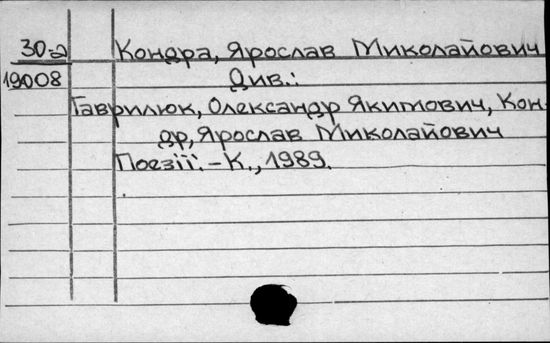 30-а Кондра, Ярослав Миколайович
19008 Див.:
Гаврилюк, Олександр Якимович, Кон-
др, Ярослав Миколайович
Поезії. - К., 1989.